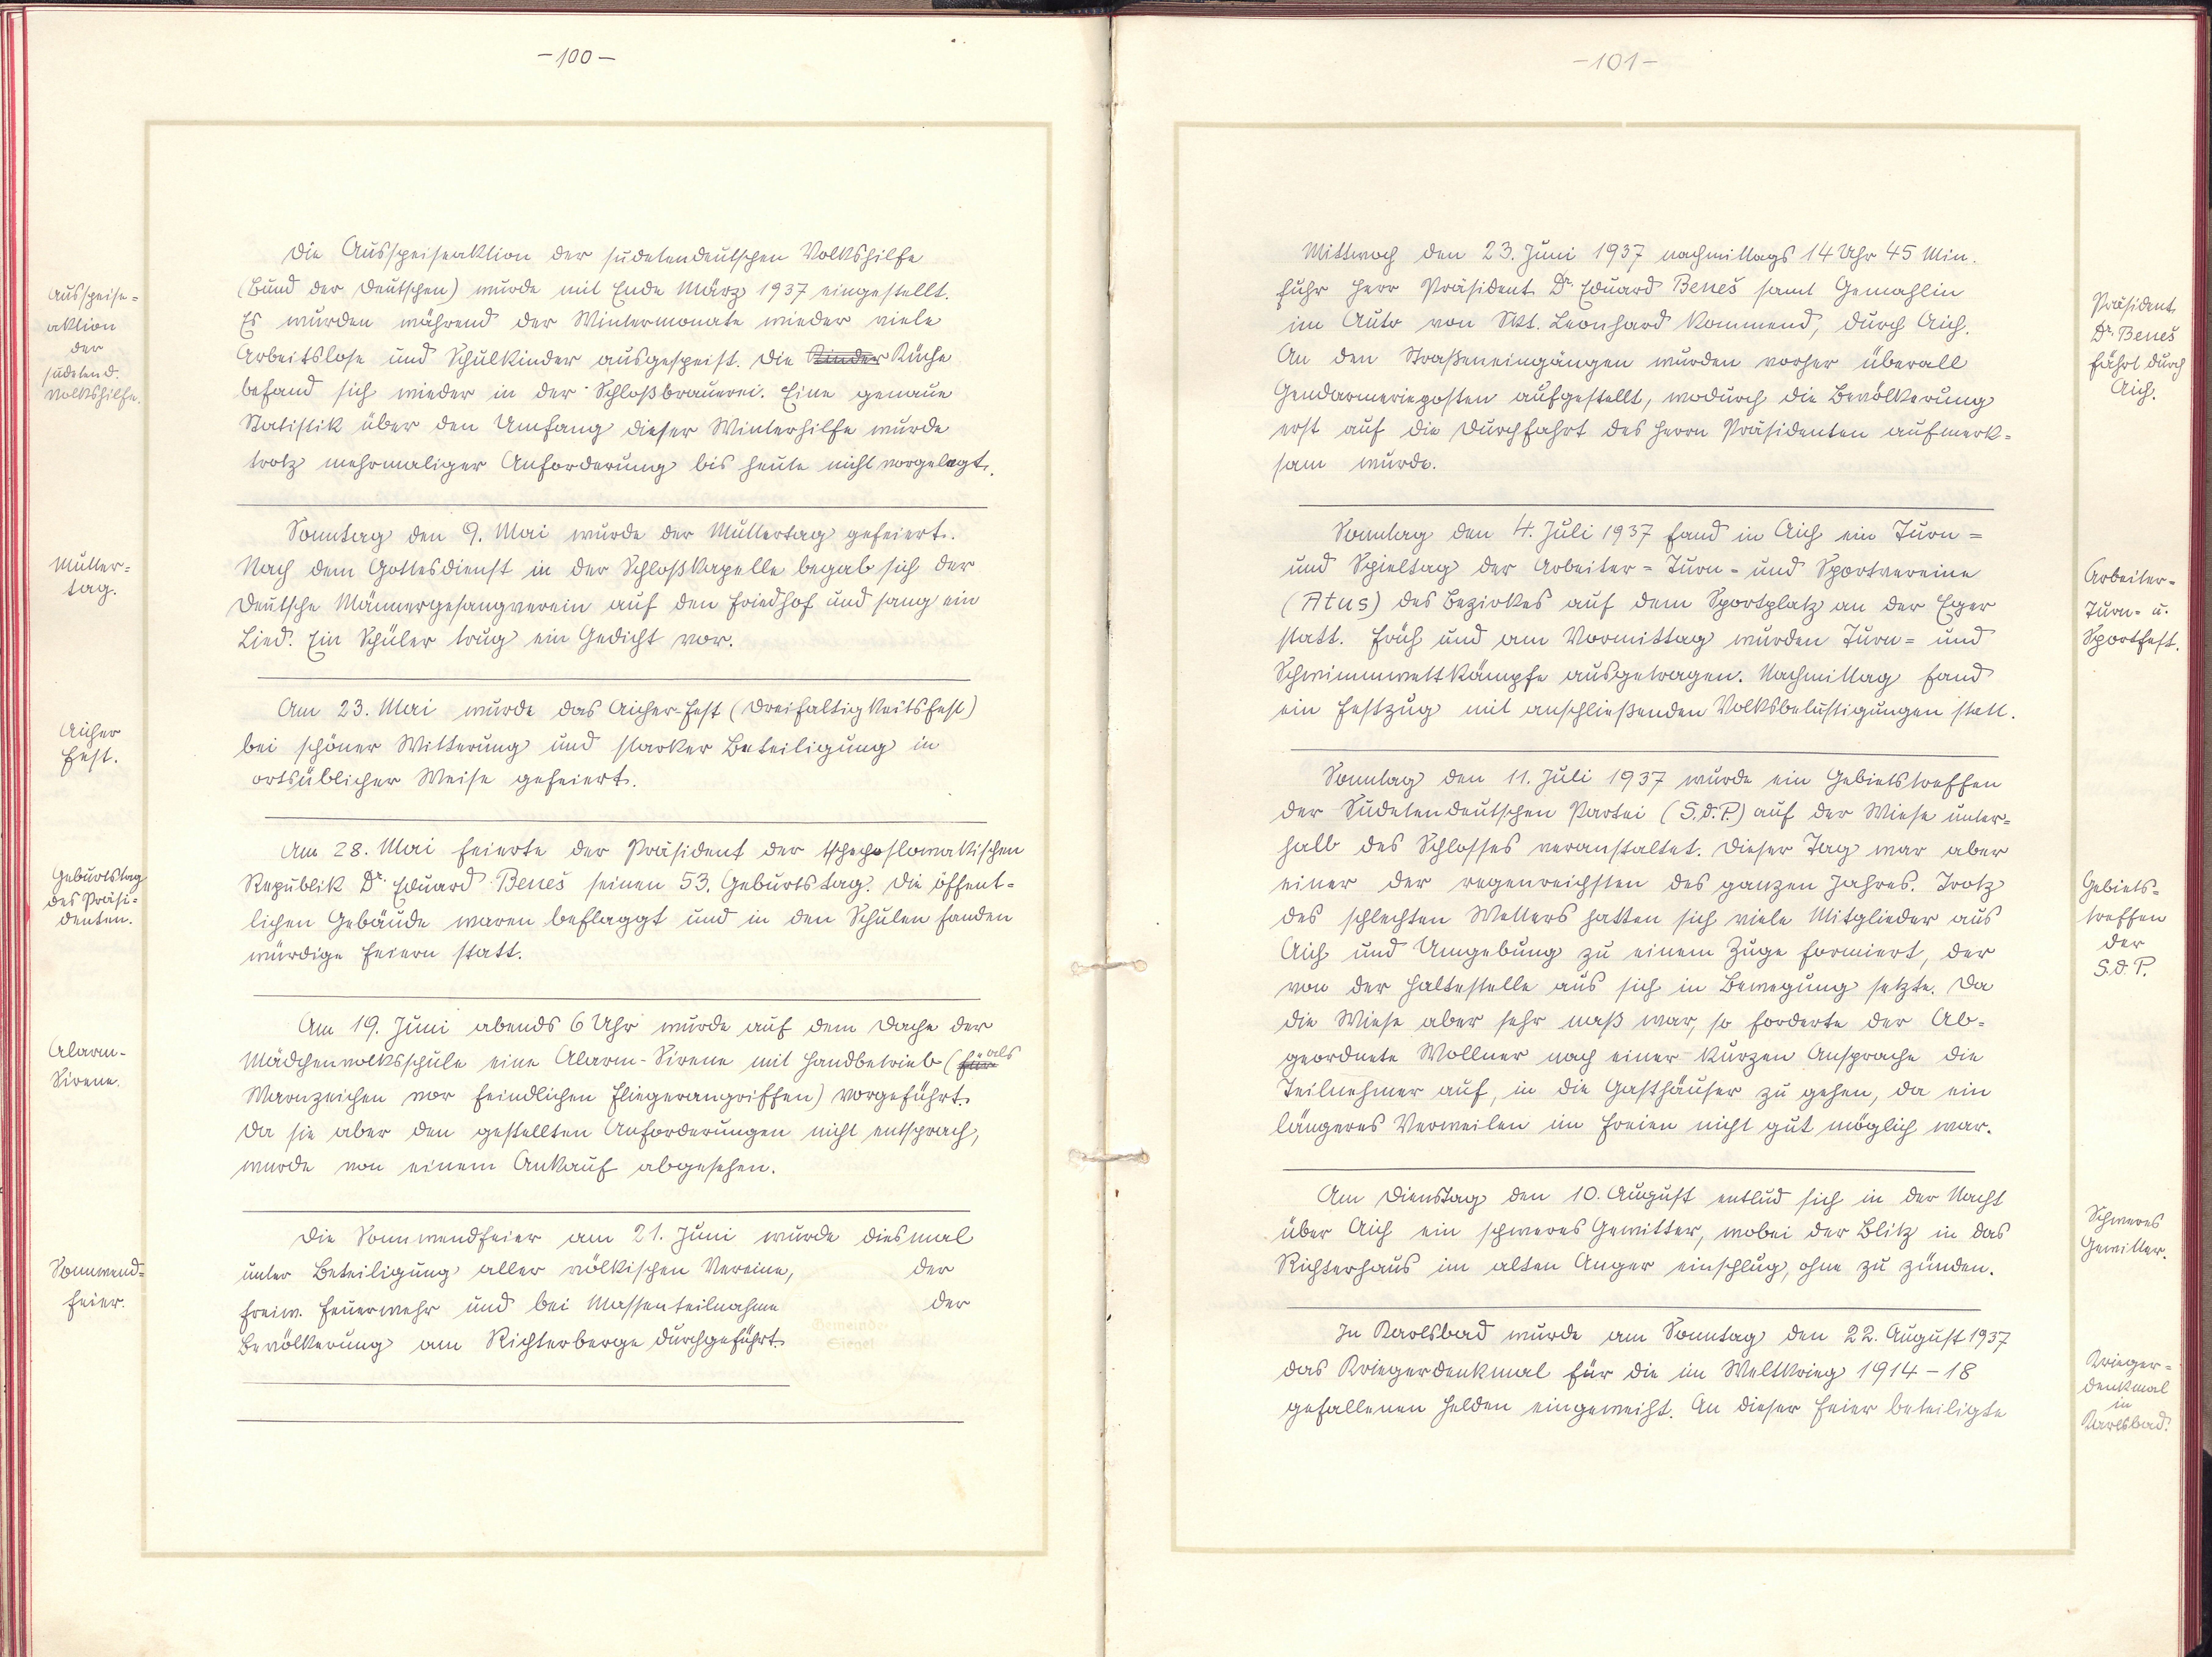 -100-
Ausspeise=
aktion
der
sudetend.
Volkshilfe.
Die Ausspeiseaktion der sudetendeutschen Volkshilfe
(Bund der Deutschen) wurde mit Ende März 1937 eingestellt.
Es wurden während der Wintermonate wieder viele
Arbeitslose und Schulkinder ausgespeist. Die Kinder Küche
befand sich wieder in der Schloßbrauerei. Eine genaue
Statistik über den Umfang dieser Winterhilfe wurde
trotz mehrmaliger Anforderung bis heute nicht vorgelegt.
Mutter=
tag.
Sonntag den 9. Mai wurde der Muttertag gefeiert.
Nach dem Gottesdienst in der Schloßkapelle begab sich der
Deutsche Männergesangverein auf den Friedhof und sang ein
Lied. Ein Schüler trug ein Gedicht vor.
Aicher
Fest.
Am 23. Mai wurde das Aicher-Fest (Dreifaltigkeitsfest)
bei schöner Witterung und starker Beteiligung in
ortsüblicher Weise gefeiert.
Geburtstag
des Präsi=
denten.
Am 28. Mai feierte der Präsident der tschechoslowakischen
Republik Dr. Eduard Beneš seinen 53. Geburtstag. Die öffent=
lichen Gebäude waren beflaggt und in den Schulen fanden
würdige Feiern statt.
Alarm-
Sirene.
Am 19. Juni abends 6 Uhr wurde auf dem Dache der
Mädchenvolksschule eine Alarm-Sirene mit Handbetrieb (für als
Warnzeichen vor feindlichen Fliegerangriffen) vorgeführt.
Da sie aber den gestellten Anforderungen nicht entsprach,
wurde von einem Ankauf abgesehen.
Sonnwend=
feier.
Die Sonnwendfeier am 21. Juni wurde diesmal
unter Beteiligung aller völkischen Vereine, der
freiw. Feuerwehr und bei Massenteilnahme der
Bevölkerung am Richterberge durchgeführt.
Gemeinde-
Siegel
-101-
Mittwoch den 23. Juni 1937 nachmittags 14 Uhr 45 Min.
fuhr Herr Präsident Dr. Eduard Beneš samt Gemahlin
im Auto von Skt. Leonhard kommend, durch Aich.
An den Straßeneingängen wurden vorher überall
Gendarmerieposten aufgestellt, wodurch die Bevölkerung
erst auf die Durchfahrt des Herrn Präsidenten aufmerk=
sam wurde.
Präsident
Dr. Beneš
fährt durch
Aich.
Sonntag den 4. Juli 1937 fand in Aich ein Turn=
und Spieltag der Arbeiter=Turn= und Sportvereine
(Atus) des Bezirkes auf dem Sportplatz an der Eger
statt. Früh und am Vormittag wurden Turn= und
Schwimmwettkämpfe ausgetragen. Nachmittag fand
ein Festzug mit anschließenden Volksbelustigungen statt.
Arbeiter=
Turn= u.
Sportfest.
Sonntag den 11. Juli 1937 wurde ein Gebietstreffen
der Sudetendeutschen Partei (S.d.P.) auf der Wiese unter=
halb des Schlosses veranstaltet. Dieser Tag war aber
einer der regenreichsten des ganzen Jahres. Trotz
des schlechten Wetters hatten sich viele Mitglieder aus
Aich und Umgebung zu einem Zuge formiert, der
von der Haltestelle aus sich in Bewegung setzte. Da
die Wiese aber sehr naß war, so forderte der Ab=
geordnete Wollner nach einer kurzen Ansprache die
Teilnehmer auf, in die Gasthäuser zu gehen, da ein
längeres Verweilen im Freien nicht gut möglich war.
Gebiets=
treffen
der
S.d.P.
Am Dienstag den 10. August entlud sich in der Nacht
über Aich ein schweres Gewitter, wobei der Blitz in das
Richterhaus im alten Anger einschlug, ohne zu zünden.
Schweres
Gewitter.
In Karlsbad wurde am Sonntag den 22. August 1937
das Kriegerdenkmal für die im Weltkrieg 1914-18
gefallenen Helden eingeweiht. An dieser Feier beteiligte
Krieger=
denkmal
in
Karlsbad.